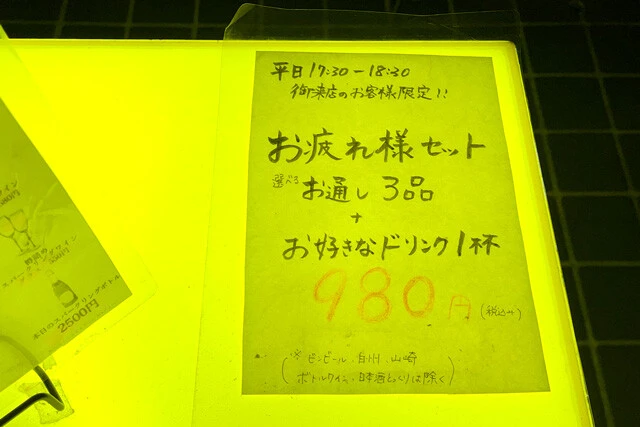 平日 17:30-18:30
御来店のお客様限定!!
お疲れ様セット
選べる お通し 3品
+
お好きなドリンク1杯
980円 (税込み)
(※ビンビール・白州・山崎
ボトルワイン・日本酒とっくりは除く)
本日のスパークリングボトル
2500円